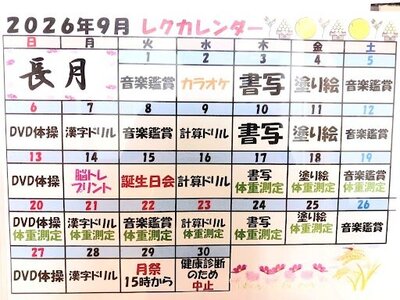 2026年9月 レクカレンダー
日 月 火 水 木 金 土
長月
1 2 3 4 5
音楽鑑賞 カラオケ 書写 塗り絵 音楽鑑賞
6 7 8 9 10 11 12
DVD体操 漢字ドリル 音楽鑑賞 計算ドリル 書写 塗り絵 音楽鑑賞
13 14 15 16 17 18 19
DVD体操 脳トレ プリント 誕生日会 計算ドリル 書写 体重測定 塗り絵 体重測定 音楽鑑賞 体重測定
20 21 22 23 24 25 26
DVD体操 体重測定 漢字ドリル 体重測定 音楽鑑賞 体重測定 計算ドリル 体重測定 書写 体重測定 塗り絵 体重測定 音楽鑑賞
27 28 29 30
DVD体操 漢字ドリル 月祭 15時から 健康診断 のため 中止